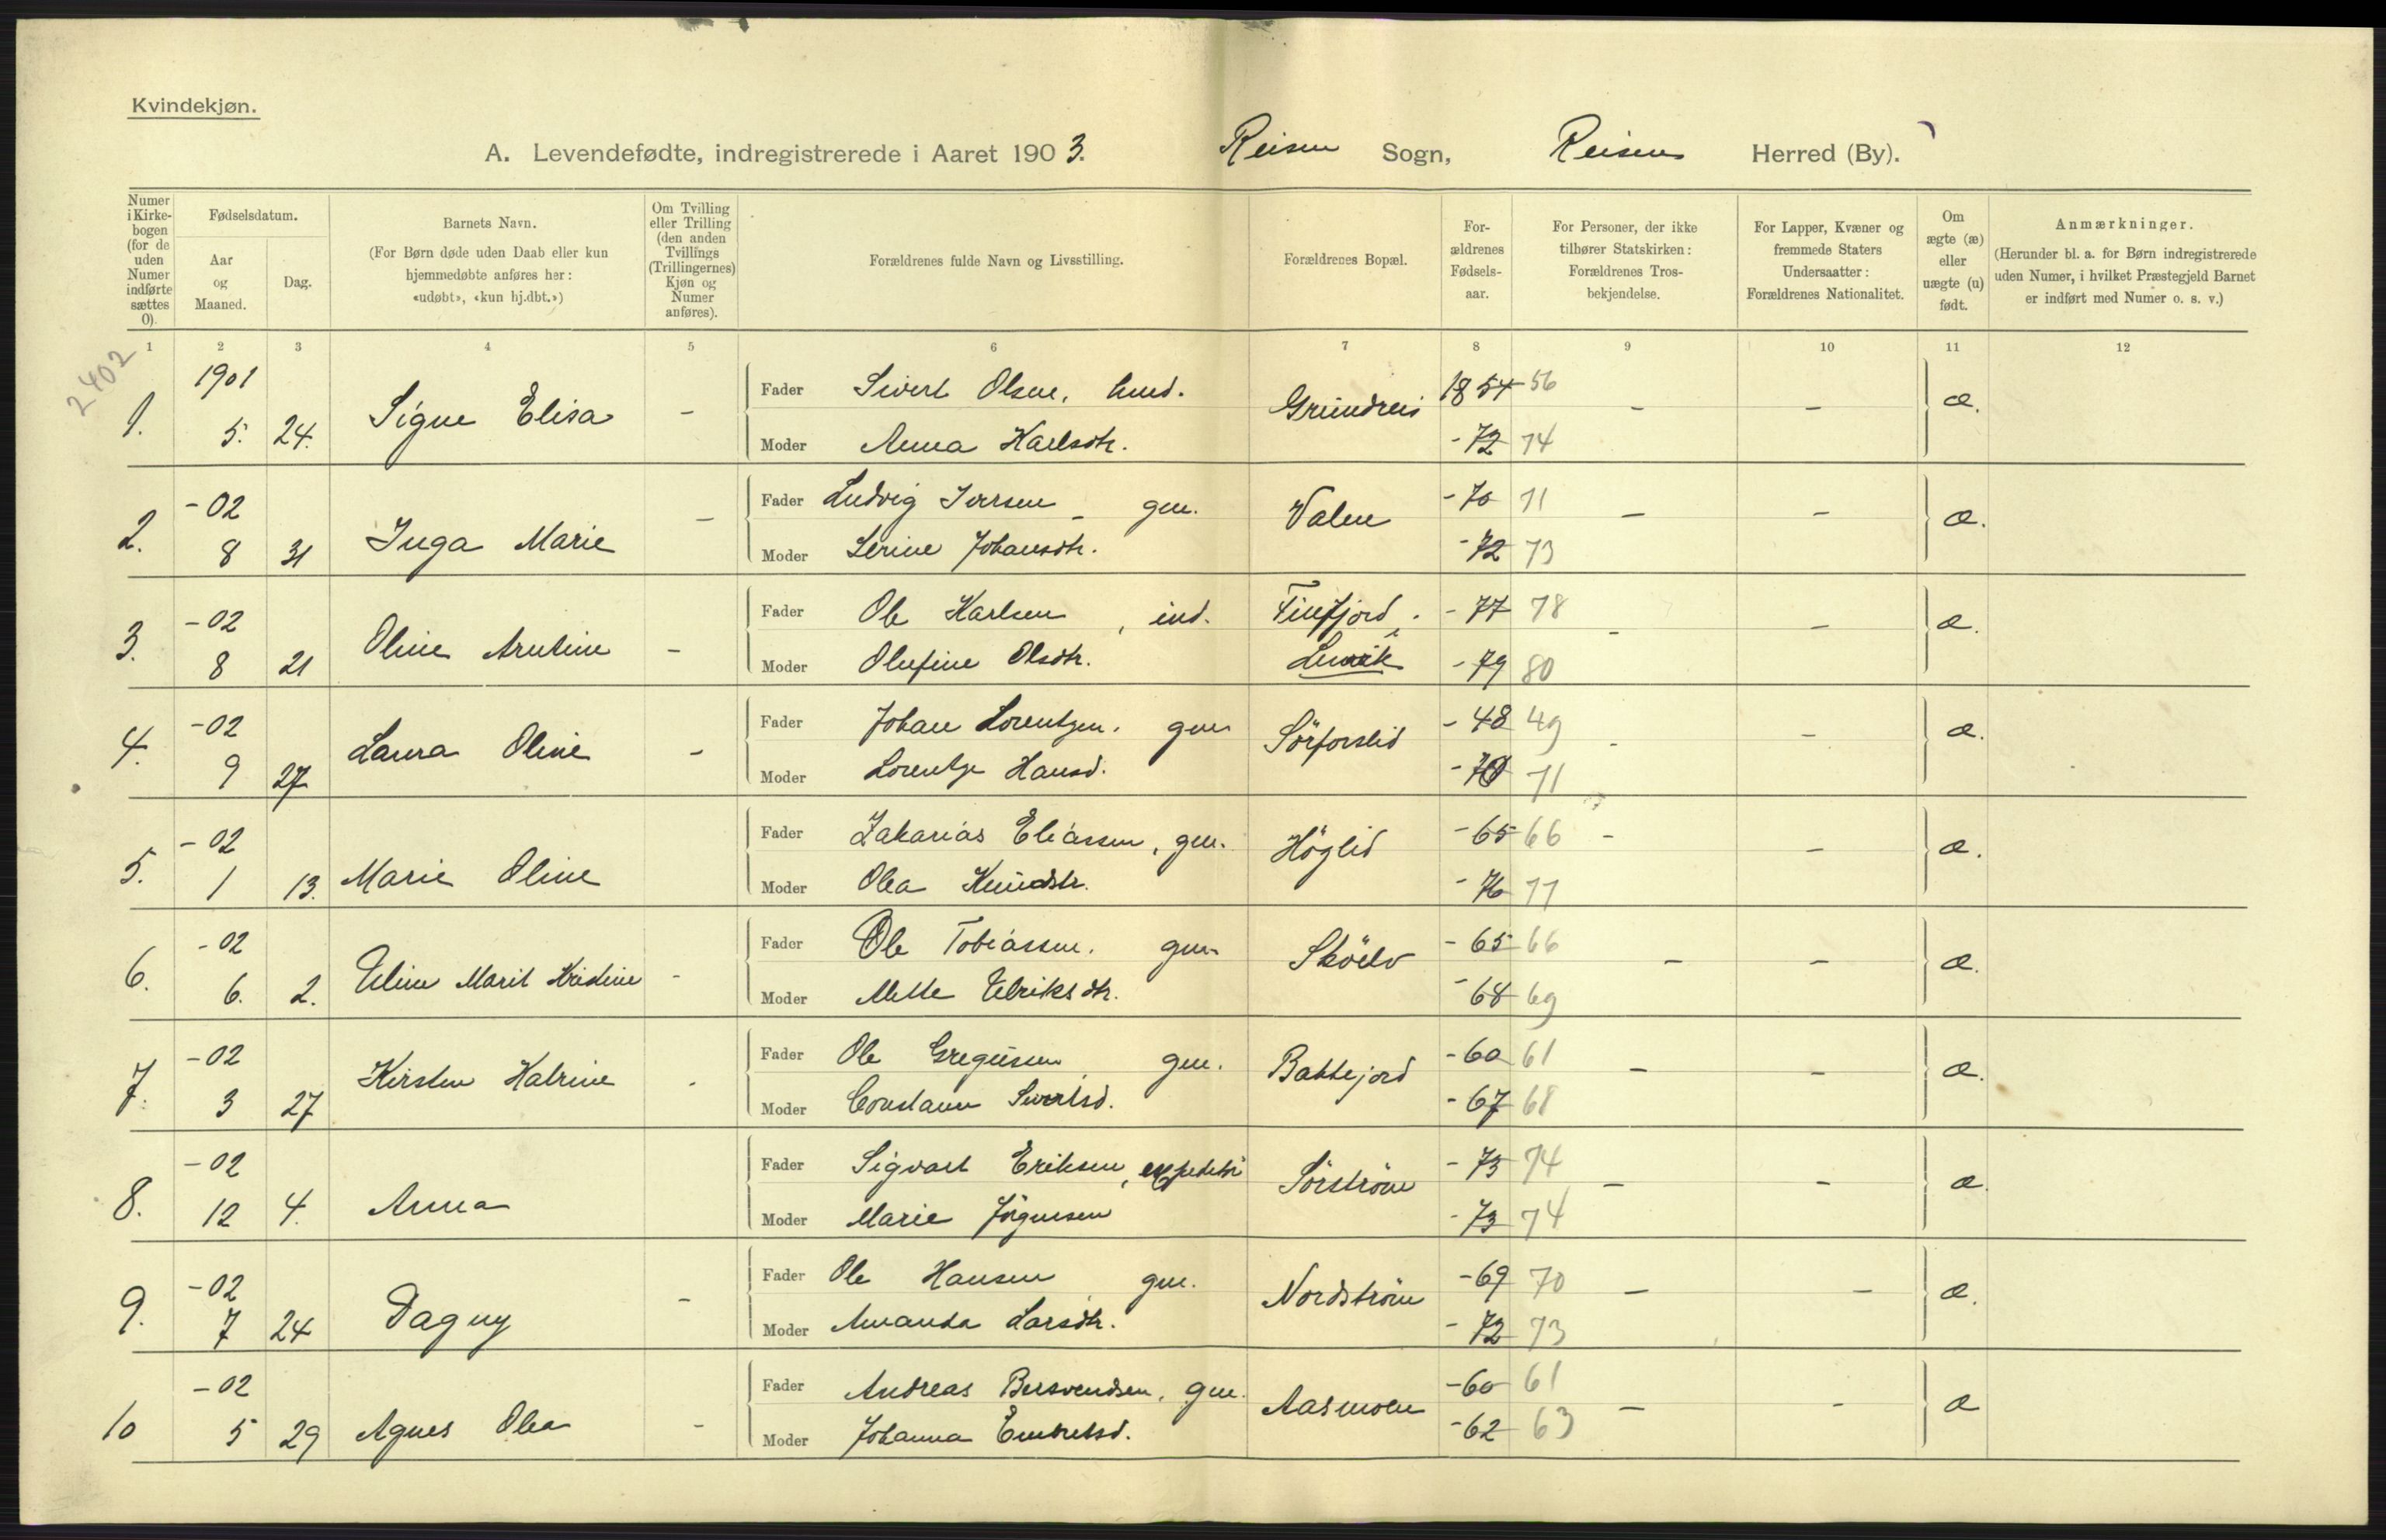 Kvindekjøn.
A. Levendefødte, indregistrerede i Aaret 1903. Reisen Sogn, Reisens Herred (By).
Numer i Kirkebogen (for de uden Numer indførte sættes 0).
Fødselsdatum.
Aar og Maaned.
Dag.
Barnets Navn.
(For Børn døde uden Daab eller kun hjemmedøbte anføres her: «udøbt», «kun hj.dbt.»)
Om Tvilling eller Trilling (den anden Tvillings (Trillingernes) Kjøn og Numer anføres).
Forældrenes fulde Navn og Livsstilling.
Forældrenes Bopæl.
Forældrenes Fødselsaar.
For Personer, der ikke tilhører Statskirken: Forældrenes Trosbekjendelse.
For Lapper, Kvæner og fremmede Staters Undersaatter: Forældrenes Nationalitet.
Om ægte (æ) eller uægte (u) født.
Anmærkninger.
(Herunder bl. a. for Børn indregistrerede uden Numer, i hvilket Præstegjeld Barnet er indført med Numer o. s. v.)
1 2 3 4 5 6 7 8 9 10 11 12
2402
1. 1901 5. 24. Signe Elisa - Fader Sivert Olsen, Grundreis 1854 56 - - æ.
Moder Anna Karlsdtr. -72 74
2. -02 8 31 Inga Marie - Fader Ludvig Iversen - gm. Valen -70 71 - - æ.
Moder Serine Johansdtr. -72 73
3. -02 8 21 Oline Arntine - Fader Ole Karlsen, ind. Finfjord i Lenvik -77 78 - - æ.
Moder Olufine Olsdtr. -79 80
4. -02 9 27 Laura Oline - Fader Johan Lorentzen. gm. Sörforslid -48 49 - - æ.
Moder Lorentze Hansd. -70 71
5. -02 1 13. Marie Oline Fader Zakarias Eliassen, gm. Höglid -65 66 - - æ.
Moder Olea Knudsdtr. -76 77
6. -02 6. 2. Uline Marit Kristine - Fader Ole Tobiassen. gm. Sköelv -65 66 - - æ.
Moder Mette Ulriksdtr. -68 69
7. -02 3 27 Kirsten Katrine - Fader Ole Gregusen gm. Bakkejord -60 61 - - æ.
Moder Constanse Sivertsd. -67 68
8. -02 12 4. Anna Fader Sigvart Eriksen, Sörström -73 74 - - æ.
Moder Marie Jörgensen -73 74
9. -02 7 24 Dagny - Fader Ole Hansen gm. Nordström -69 70 - - æ.
Moder Amanda Larsdtr. -72 73
10 -02 5 29 Agnes Olea - Fader Andreas Bersvendsen, gm. Aasmoen -60 61 - - æ
Moder Johanna Embretsd. -62 63